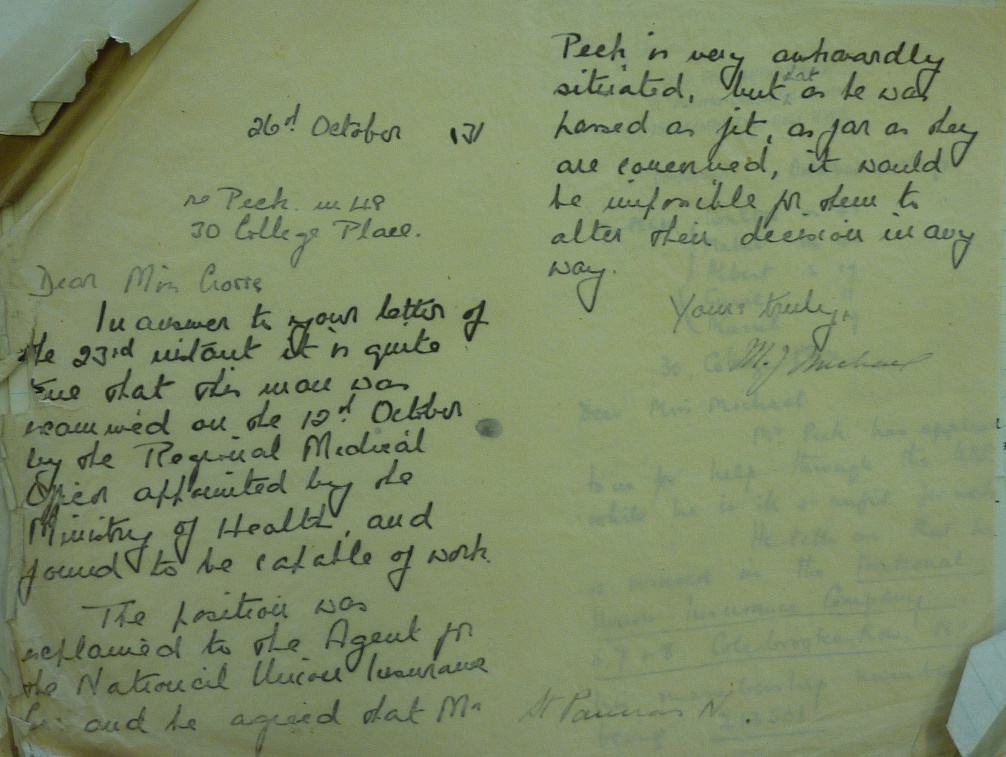 26th October '31
re Peck. m 48
30 College Place.
Dear Miss
In answer to your letter of
the 23rd instant it is quite
true that this man was
examined on the 12th October
by the Regional Medical
Officer appointed by the
Ministry of Health, and
found to be capable of work.
The position was
explained to the Agent for
the National Union Insurance
Co. and he agreed that Mr
Peck is very awkwardly
situated, but that as he was
passed as fit, as far as they
are concerned, it would
be impossible for them to
alter their decision in any
way.
Yours truly,
M. J. Michael
St Pancras N.
30, Co
Dear Miss Michael
Mr. Peck has applied
to us for help through the
while he is ill & unfit for work
He tells us that he
is insured in the National
Union Insurance Company
7 & 8 Colebrooke Row. N.
his membership number
being